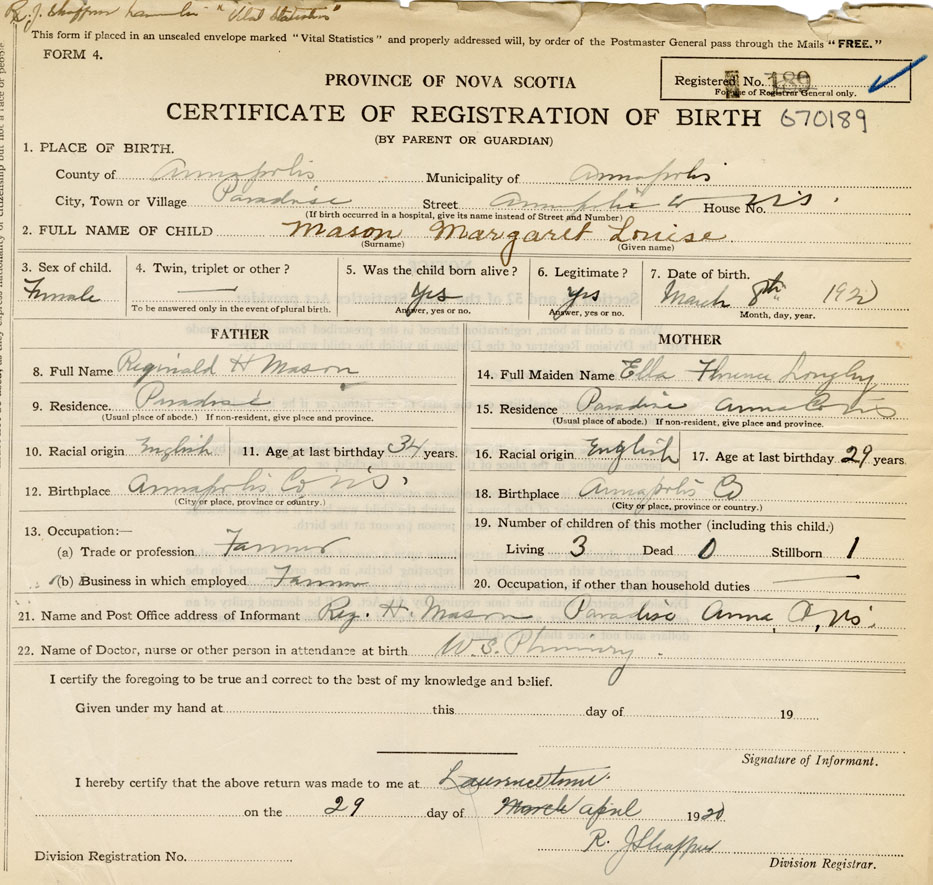 R. J. Shaffner "Vital Statistics"
This form if placed in an unsealed envelope marked "Vital Statistics" and properly addressed will, by order of the Postmaster General pass through the Mails "FREE."
FORM 4.
PROVINCE OF NOVA SCOTIA
Registered No. 189
For use of Registrar General only.
CERTIFICATE OF REGISTRATION OF BIRTH 670189
(BY PARENT OR GUARDIAN)
1. PLACE OF BIRTH.
County of Annapolis Municipality of Annapolis
City, Town or Village Paradise Street Annapolis Co House No. N.S.
(If birth occurred in a hospital, give its name instead of Street and Number)
2. FULL NAME OF CHILD Mason Margaret Louise
(Surname) (Given name)
3. Sex of child. 4. Twin, triplet or other? 5. Was the child born alive? 6. Legitimate? 7. Date of birth.
Female Yes Yes March 8th 1920
To be answered only in the event of plural birth. Answer, yes or no. Answer, yes or no. Month, day, year.
FATHER
8. Full Name Reginald H Mason
9. Residence. Paradise
(Usual place of abode.) If non-resident, give place and province.
10. Racial origin English 11. Age at last birthday 34 years.
12. Birthplace Annapolis Co N.S.
(City or place, province or country.)
13. Occupation:—
(a) Trade or profession Farmer
(b) Business in which employed Farmer
MOTHER
14. Full Maiden Name Ella Florence Longley
15. Residence Paradise Anna Co NS
(Usual place of abode.) If non-resident, give place and province.
16. Racial origin English 17. Age at last birthday 29 years
18. Birthplace Annapolis Co
(City or place, province or country.)
19. Number of children of this mother (including this child.)
Living 3 Dead 0 Stillborn 1
20. Occupation, if other than household duties
21. Name and Post Office address of Informant Reg. H. Mason Paradise Anna, Co, NS.
22. Name of Doctor, nurse or other person in attendance at birth W.S.
I certify the foregoing to be true and correct to the best of my knowledge and belief.
Given under my hand at this day of 19
Signature of Informant.
I hereby certify that the above return was made to me at Lawrencetown
on the 29 day of March april 1920
R. J Shaffner
Division Registration No. Division Registrar.